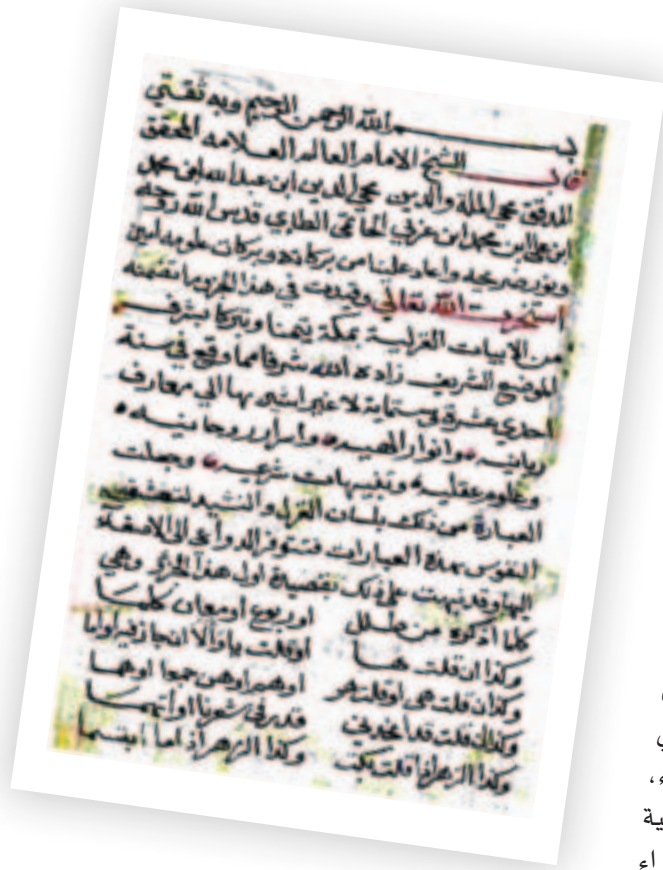 بسم الله الرحمن الرحيم وبه ثقتي
قال الشيخ الامام العالم العلامه المحقق
المدقق محي الملة والدين محي الدين ابن عبد الله ابن محمد
ابن علي ابن محمد ابن عربي الحاتمي الطايي قدس الله روحه
ونور ضريحه واعاد علينا من بركاته وبركات علومه امين
استخرت الله تعالى وقيدت في هذا الجزو ما نظمته
من الابيات الغزلية بمكة يتمنا وتبركا بشرف
الموضع الشريف زاده الله شرفا مما وقع في سنة
احدي عشرة وستماية لا غير اشير بها الي معارف
ربانيه وانوار الهيه واسرار روحانيه
وعلوم عقليه وتنبيهات شرعيه وجعلت
العبارة من ذلك بلسان الغزل و النشيد لتعشق
النفوس بهذه العبارات فتتوفر الدواعي الي الاصغاء
اليها وقد نبهت علي ذلك بقصيدة اول هذا الجزؤ وهي
كلما اذكره من طلل اوربوع اومعان كلما
وكذا ان قلت ها اوقلت يا والا ان جا فيه اواما
وكذا ان قلت هي اوقلت هو اوهم اوهن جمعا اوهما
وكذا ان قلت قد انجد لي قدر في شعرنا اواتهما
وكذا الزهر اذا ما ابتسما
ي
ء،
ية
اء